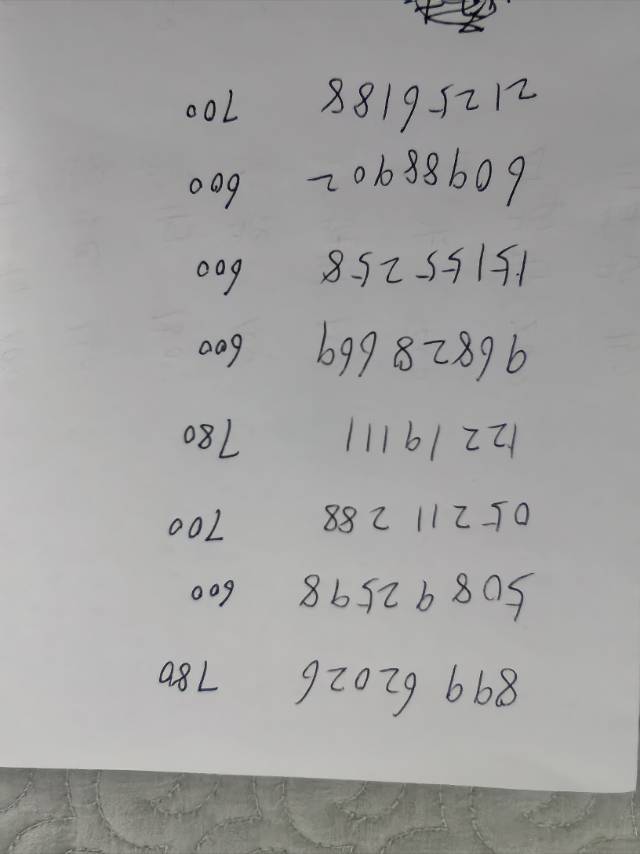 899 62026 780
508 9 2598 600
05211 288 700
122 19111 780
96828669 600
15155258 600
60988902 600
21256188 700